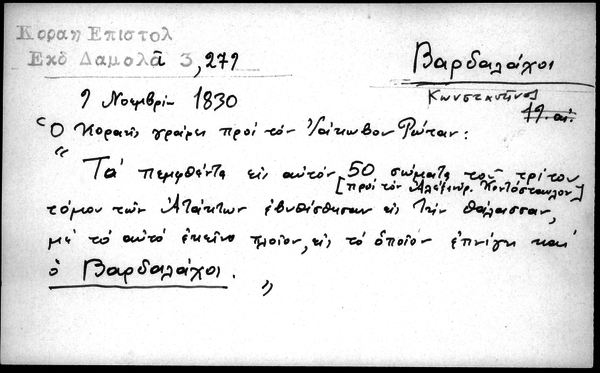 Κοραη Επιστολ
Εκδ Δαμολᾶ 3, 271
Βαρδαλάχος
Κωνσταντῖνος
19. αἰ.
9 Νοεμβρίου 1830
Ὁ Κοραῆς γράφει πρὸς τὸν Ἰάκωβον Ρώταν:
“Τὰ πεμφθέντα εἰς αὐτὸν 50 σώματα τοῦ τρίτου
[πρὸς τὸν Ἀλέξανδρ. Κοντόσταυλον]
τόμου τῶν Ἀτάκτων ἐβυθίσθησαν εἰς τὴν θάλασσαν,
μὲ τὸ αὐτὸ ἐκεῖνο πλοῖον, εἰς τὸ ὁποῖον ἐπνίγη καὶ
ὁ Βαρδαλάχος. „